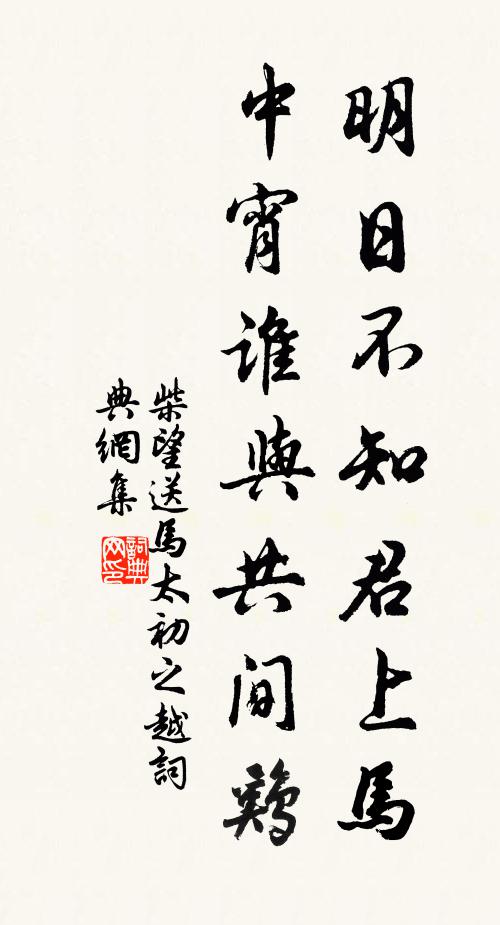 明日不知君上馬
中宵誰與共間鷄
柴望送馬太初之越詞
典網集
詞典網印